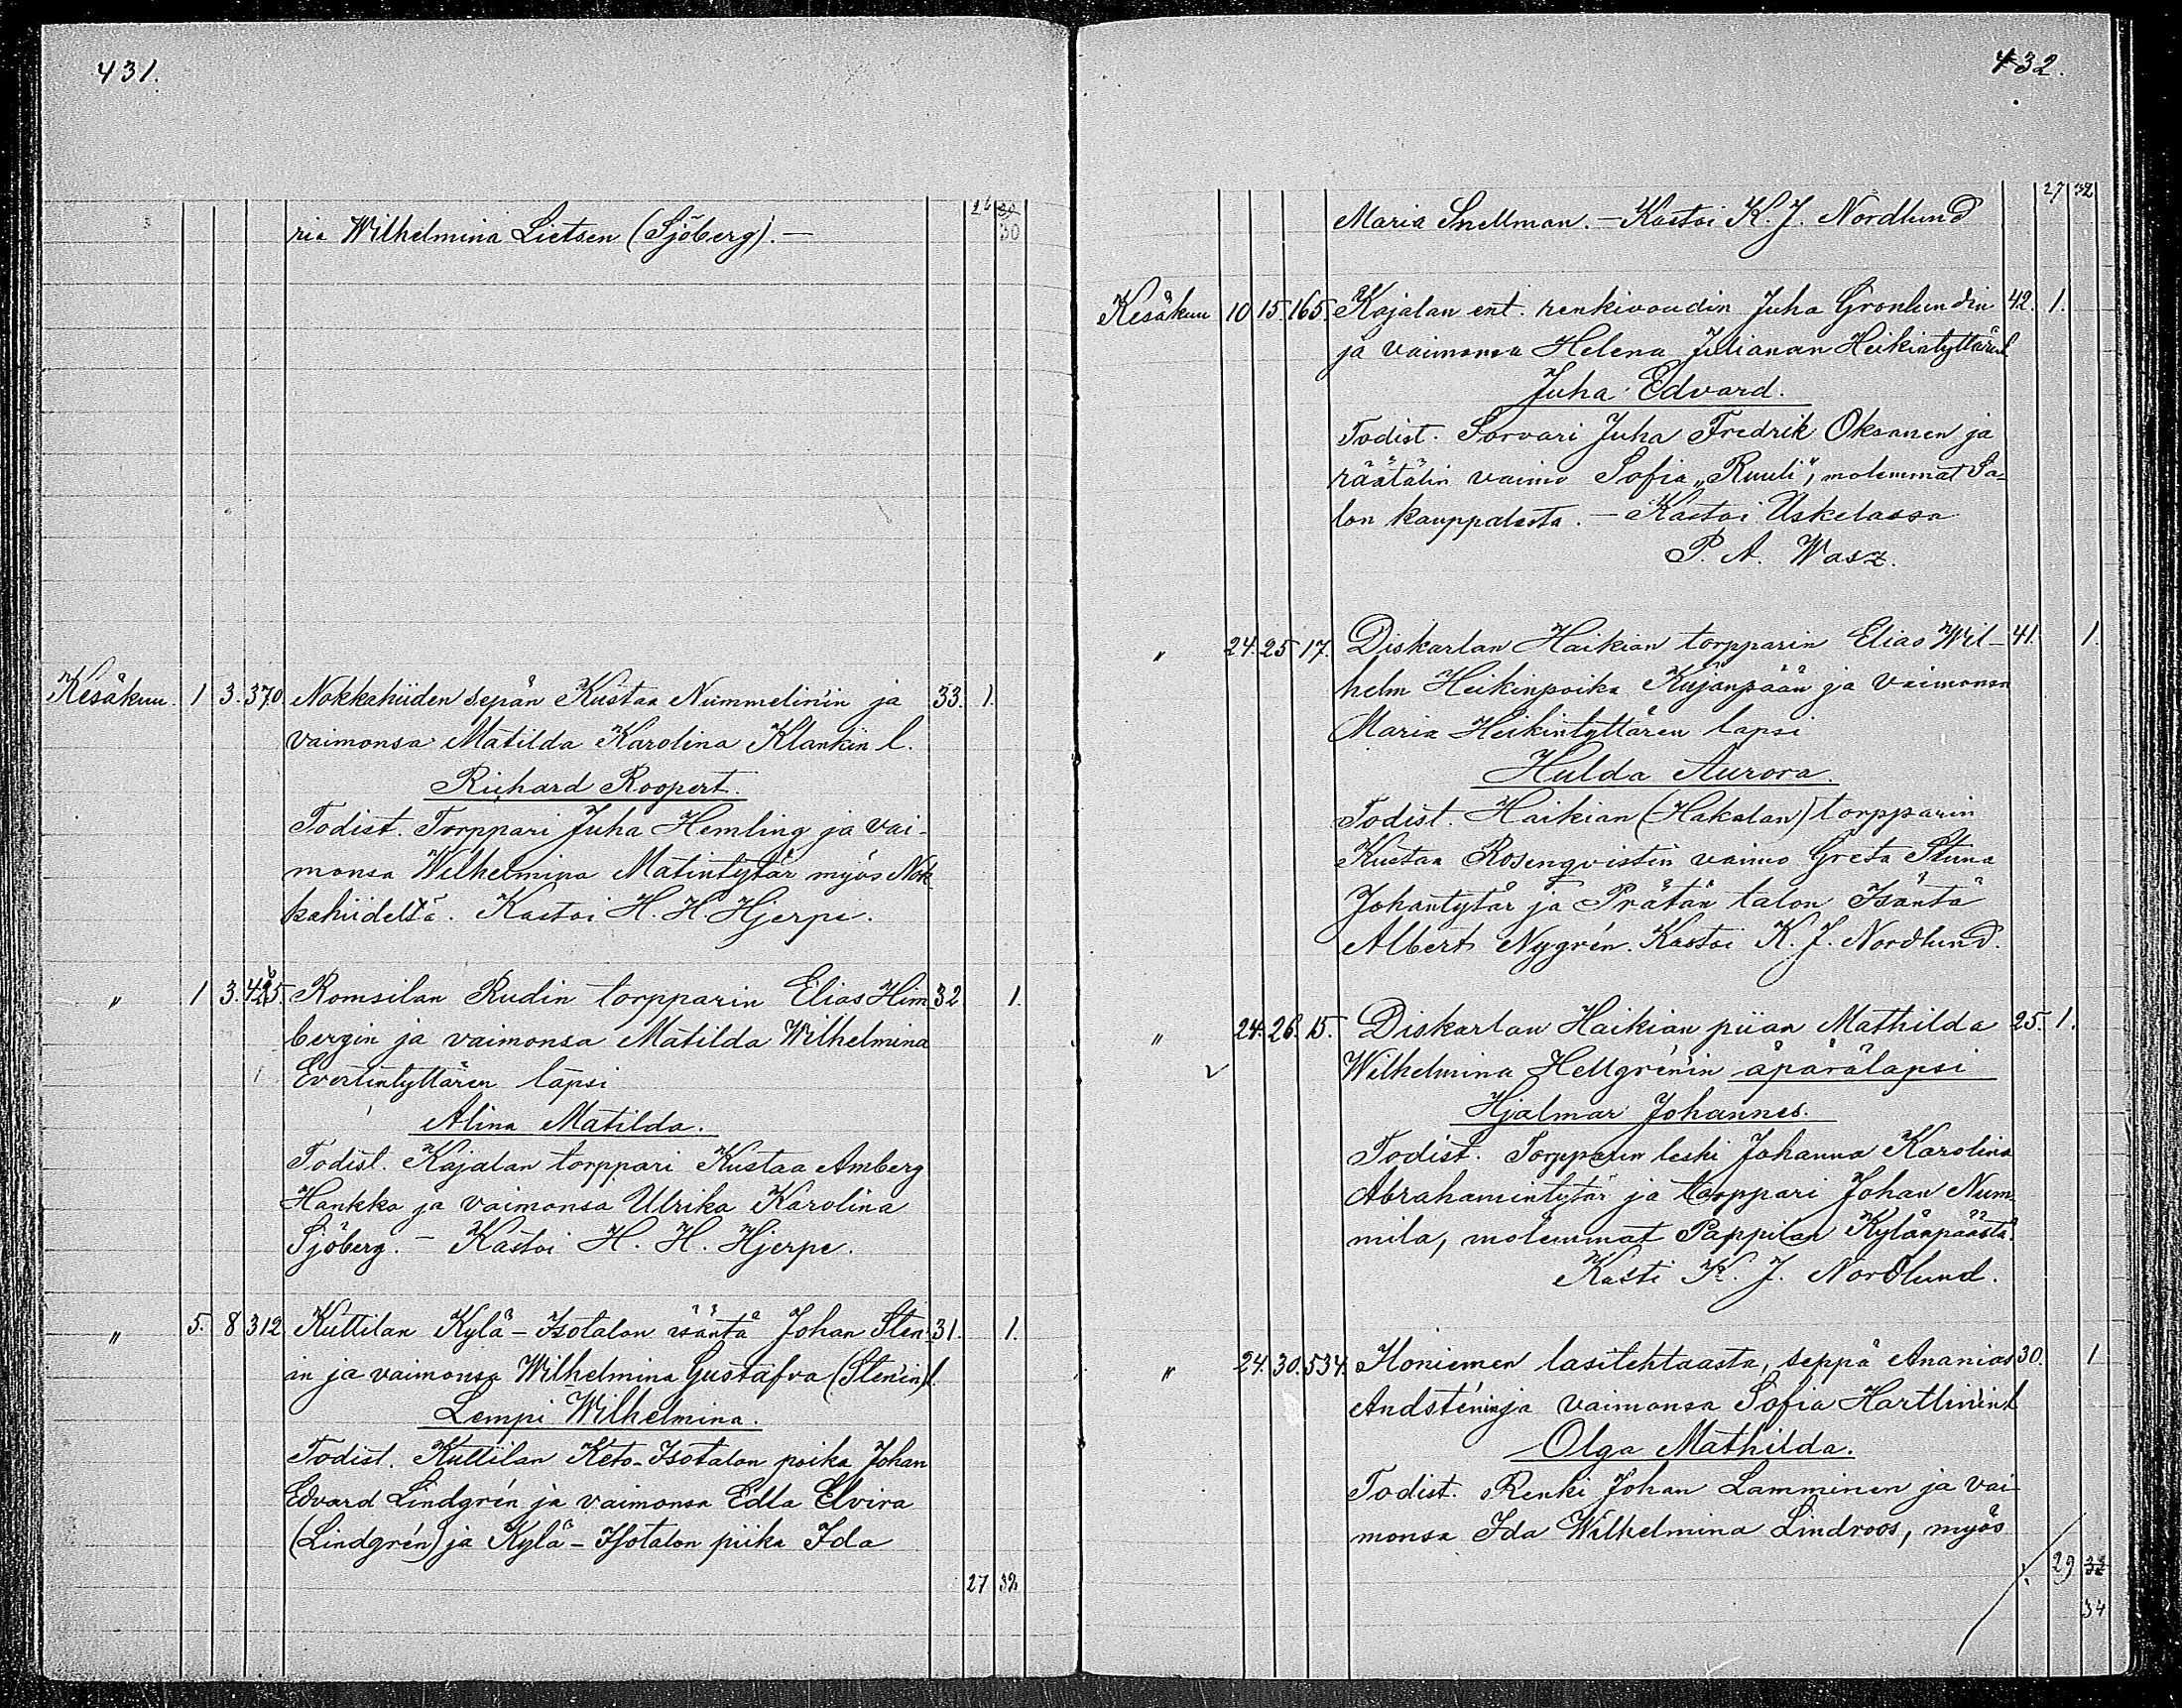 431.
26 30
ria Wilhelmina Lietsen (Sjöberg). — 30
Kesäkuu. 1 3. 370 Nokkahiiden sepän Kustaa Nummelin'in ja 33. 1.
vaimonsa Matilda Karolina Klankin l.
Richard Roopert.
Todist. Torppari Juha Hemling ja vai-
monsa Wilhelmina Matintytär myös Nok
kahiideltä. Kastoi H. H. Hjerpe.
" 1 3. 425. Romsilan Rudin torpparin Elias Him 32 1.
bergin ja vaimonsa Matilda Wilhelmina
Evertintyttären lapsi
Alina Matilda.
Todist. Kajalan torppari Kustaa Amberg
Hankka ja vaimonsa Ulrika Karolina
Sjöberg. — Kastoi H. H. Hjerpe.
" 5. 8 312 Kuttilan Kylä-Isotalon isäntä Johan Sten- 31. 1.
in ja vaimonsa Wilhelmina Gustafva (Sten'in) l.
Lempi Wilhelmina.
Todist. Kuttilan Keto-Isotalon poika Johan
Edvard Lindgrén ja vaimonsa Edla Elvira
(Lindgrén) ja Kylä-Isotalon piika Ida
27 32
432.
27 32
Maria Snellman. — Kastoi K. J. Nordlund
Kesäkuu 10 15. 165. Kajalan ent. renkivoudin Juha Grönlundin 42. 1.
ja vaimonsa Helena Julianan Heikintyttären l
Juha Edvard.
Todist. Sorvari Juha Fredrik Oksanen ja
räätälin vaimo Sofia „Ruuli", molemmat Sa-
lon kauppalasta. — Kastoi Uskelassa
P. A. Wasz.
" 24. 25 17. Diskarlan Haikian torpparin Elias Wil- 41. 1.
helm Heikinpoika Kujanpään ja vaimonsa
Maria Heikintyttären lapsi
Hulda Aurora.
Todist. Haikian (Hakalan) torpparin
Kustaa Rosenqvistin vaimo Greta Stiina
Johantytär ja Prätän talon Isäntä
Albert Nygrén. Kastoi K. J. Nordlund.
" 24. 26. 15. Diskarlan Haikian piian Mathilda 25. 1.
Wilhelmina Hellgrén'in äpärälapsi
Hjalmar Johannes.
Todist. Torpparin leski Johanna Karolina
Abrahamintytär ja torppari Johan Num-
mila, molemmat Pappilan Kylänpäästä.
Kasti K. J. Nordlund.
" 24. 30. 534. Koniemen lasitehtaasta, seppä Ananias 30. 1
Andsténin ja vaimonsa Sofia Hartlin'in l
Olga Mathilda.
Todist. Renki Johan Lamminen ja vai-
monsa Ida Wilhelmina Lindroos, myös
29
34